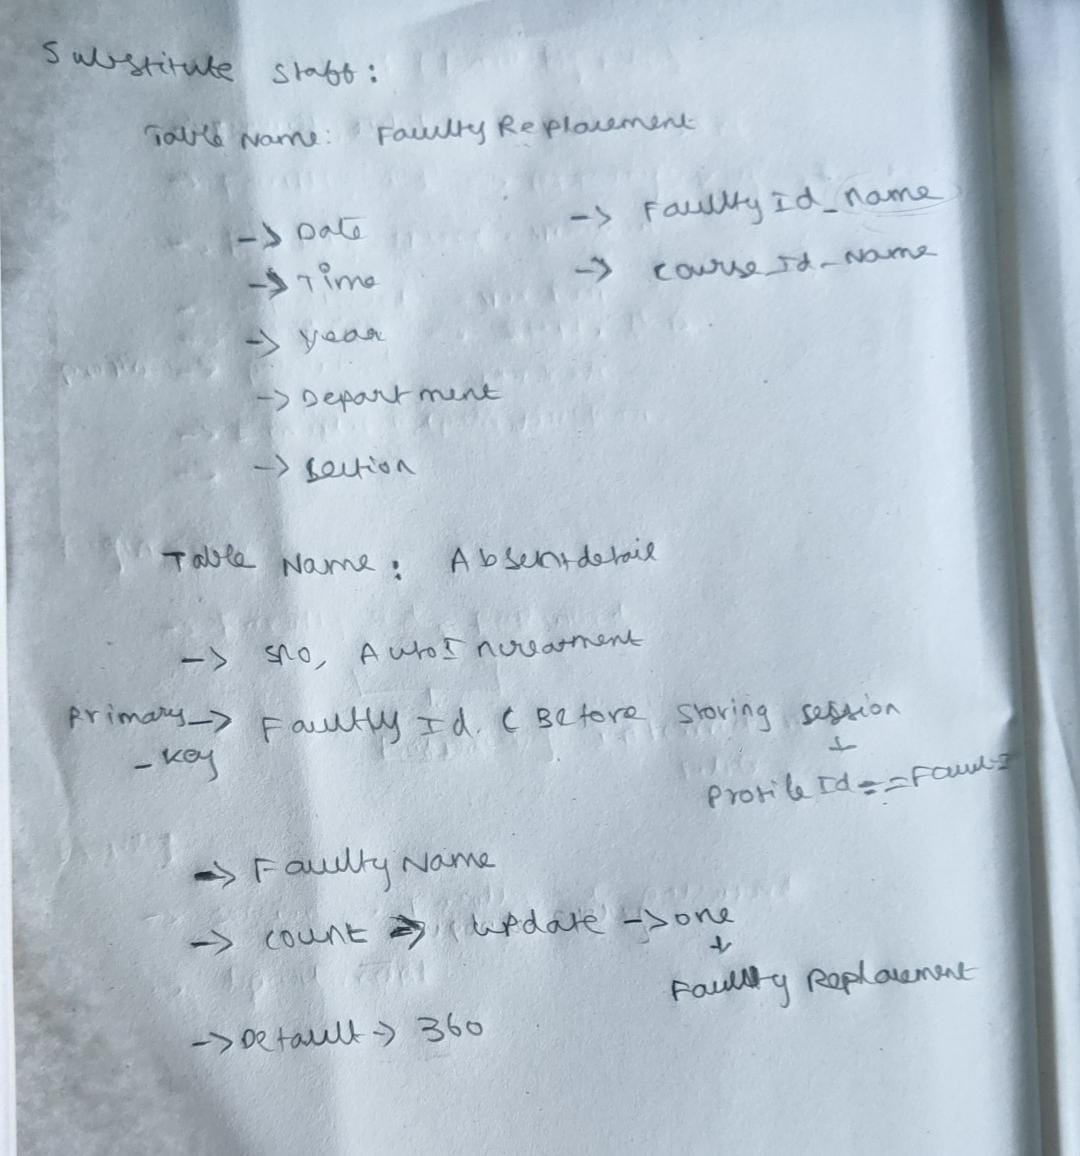 Substitute staff:
Table Name: Faculty Replacement
-> Date
-> Time
-> year
-> Department
-> Section
-> Faculty Id_name
-> Course_Id_Name
Table Name: Absentdetail
-> sno, AutoIncreatment
Primary_key -> Faculty Id. (Before storing session
↓
Profile Id ==
-> Faculty Name
-> count -> update -> one
↓
Faculty Replacement
-> Default -> 360